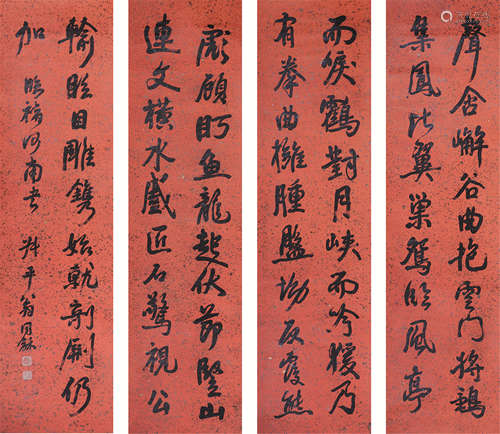 聲含嶰谷曲抱雲門將鶵
集鳳比翼巢鴛臨風亭
而唳鶴對月峽而吟猨乃
有拳曲擁腫盤坳反覆熊
彪顧盻魚龍起伏節豎山
連文橫水蹙匠石驚視公
輸眩目雕鐫始就剞劂仍
加 臨褚河南書 叔平翁同龢